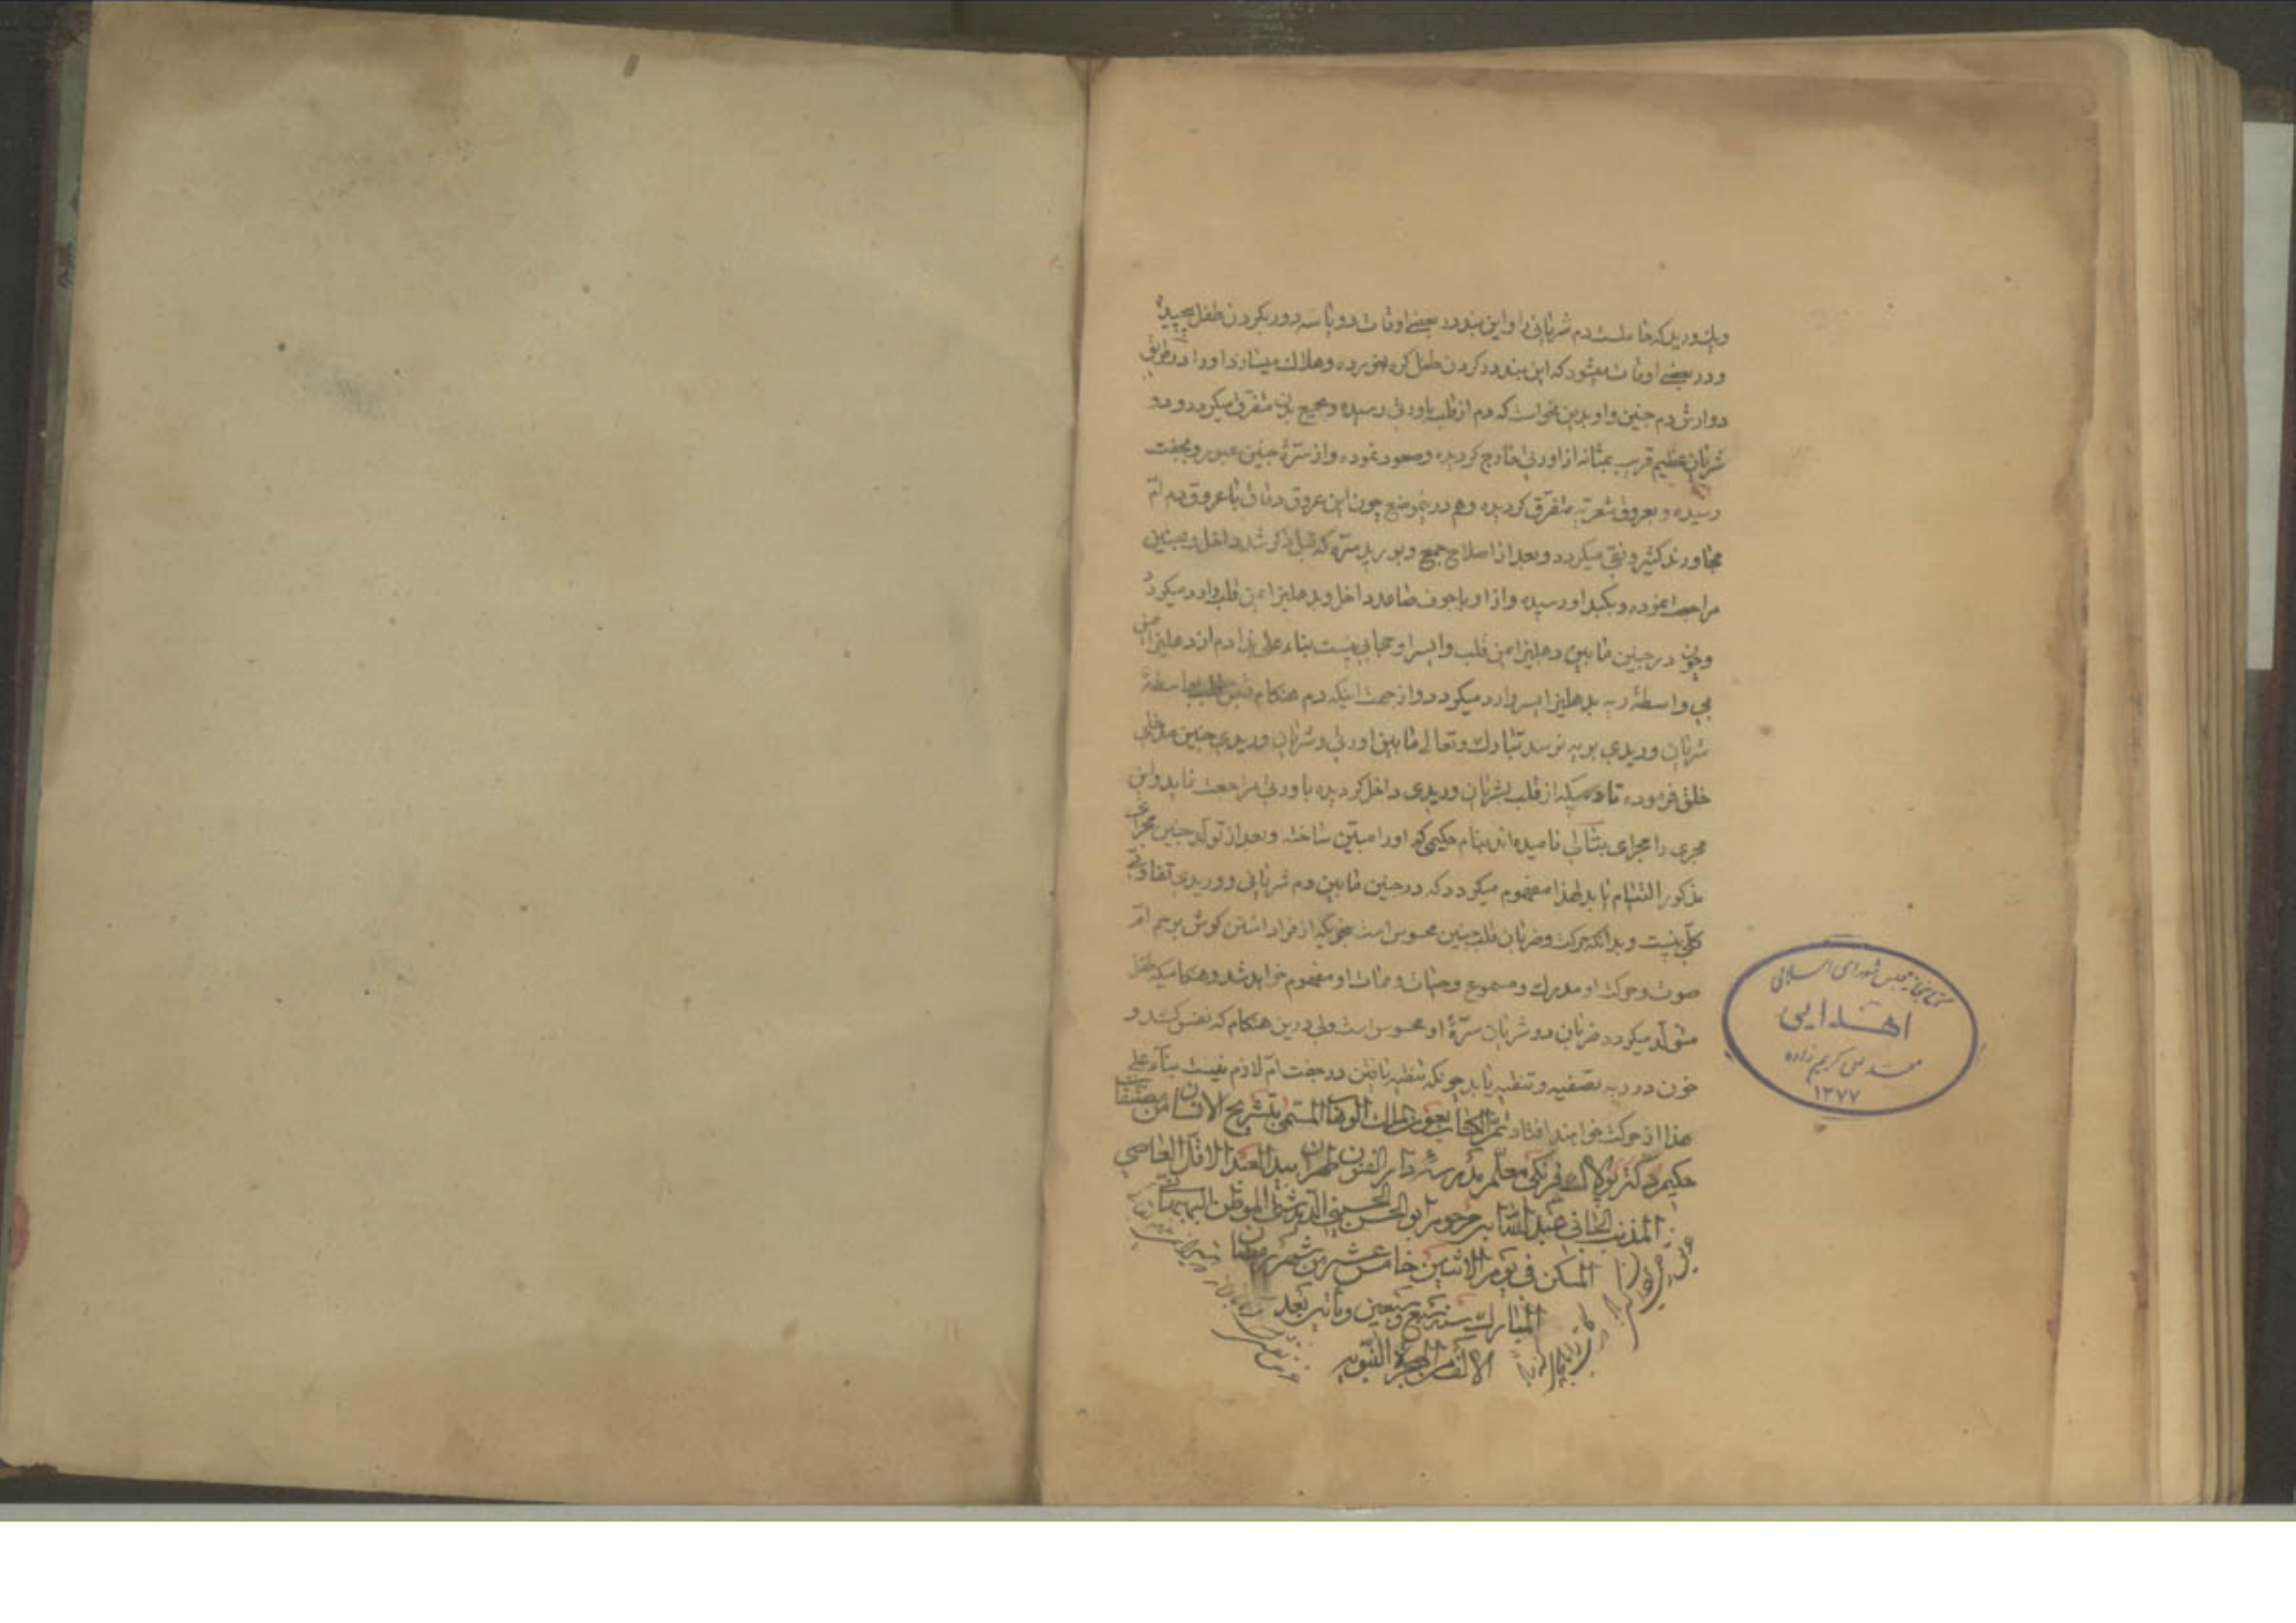 ویک ورید که حاملست دم شریانی را و این بند در بعضے اوقات دو یا سه دور بگردن طفل پیچیده
و در بعضے اوقات میشود که این بند در گردن طفل کره خورده و هلاك میسازد او را در طریق
دوارش دم جنین و او بدین نحواست که دم از قلب باورطی رسیده و بجمیع بدن متفرق میکردد و دو
شریان عظیم قریب بمثانه از اورطی خارج کردیده وصعود نموده و از سرّۀ جنین عبور و بجفت
رسیده و بعروق شعریّه متفرّق کردیده وهم در ینموضع چون این عروق دقاق با عروق دم امّ
مجاورند کثیر و نقی میکردد و بعد از اصلاح جمع و بورید سرّه که قبل ذکر شد داخل و بجنین
مراجعت نموده و بکبد او رسیده و از او باجوف صاعد داخل و بدهلیز ایمن قلب وارد میکردد
و چون در جنین مابین دهلیز ایمن قلب و ایسر او حجابی نیست بناء علی هذا دم از دهلیز ایمن
بی واسطۀ ریه بدهلیز ایسر وارد میکردد و از جهت اینکه دم هنکام قبض قلب بواسطۀ
شریان وریدی بریه نرسد تبارك وتعالی مابین اورطی و شریان وریدی جنین مدخلی
خلق فرموده تا دمیکه از قلب بشریان وریدی داخل کردیده باورطی مراجعت نماید و این
مجری را مجرای بتالی نامیده اند بنام حکیمی که او را مبیّن ساخته و بعد از تولّد جنین مجرای
مذکور التیام یابد لهذا مفهوم میکردد که در جنین مابین دم شریانی و وریدی تفاوتی
کلّی نیست و بدانکه حرکت و ضربان قلب جنین محسوس است بنحویکه از فرا داشتن کوش برحم امّ
صوت و حرکت او مدرك و مسموع و حیات و ممات او مفهوم خواهد شد و هنکامیکه طفل
متولّد میکردد ضربان دو شریان سرّۀ او محسوس است ولی درین هنکام که نفس کشد و
خون در ریه تصفیه و تنظیه یابد چونکه تنظیه یافتن در جفت امّ لازم نیست بناءً علی
هذا از حرکت خواهند افتاد تمّ الکتاب بعون الملك الوهاب المسمّی بتشریح الانسان من مصنفات
حکیم دکتر پولاك فرنکی معلّم مدرسۀ دار الفنون طهران بید العبد الاقلّ العاصی
المذنب الجانی عبد الله ابن مرحوم ابو الحسن الحسینی الموطن
المسکن فی یوم الاثنین خامس عشر من شهر رمضان
المبارك سنه سبع وسبعین ومأتین بعد
الالف من الهجرة النبویه
کتابخانه مجلس شورای اسلامی
اهدایی
محمد علی کریم زاده
۱۳۷۷